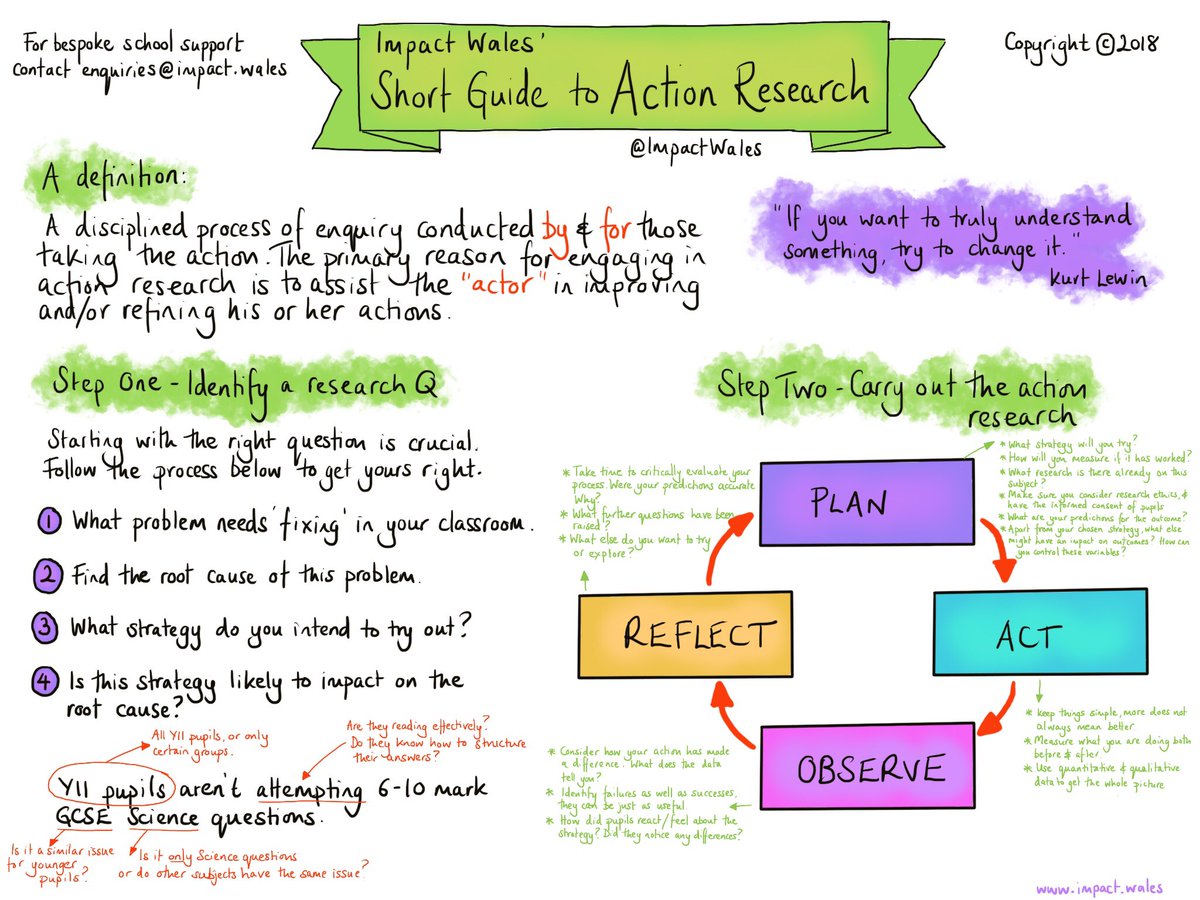 For bespoke school support
contact enquiries@impact.wales
Impact Wales'
Short Guide to Action Research
@ImpactWales
Copyright ©2018
A definition:
A disciplined process of enquiry conducted by & for those
taking the action. The primary reason for engaging in
action research is to assist the "actor" in improving
and/or refining his or her actions.
"If you want to truly understand
something, try to change it."
Kurt Lewin
Step One - Identify a research Q
Starting with the right question is crucial.
Follow the process below to get yours right.
1 What problem needs 'fixing' in your classroom.
2 Find the root cause of this problem.
3 What strategy do you intend to try out?
4 Is this strategy likely to impact on the
root cause?
All Y11 pupils, or only
certain groups.
Are they reading effectively?
Do they know how to structure
their answers?
Y11 pupils aren't attempting 6-10 mark
GCSE Science questions.
Is it a similar issue
for younger
pupils?
Is it only Science questions
or do other subjects have the same issue?
Step Two - Carry out the action
research
PLAN
* What strategy will you try?
* How will you measure if it has worked?
* What research is there already on this
subject?
* Make sure you consider research ethics, &
have the informed consent of pupils
* What are your predictions for the outcome?
* Apart from your chosen strategy, what else
might have an impact on outcomes? How can
you control these variables?
ACT
* Keep things simple, more does not
always mean better
* Measure what you are doing both
before & after
* Use quantitative & qualitative
data to get the whole picture
OBSERVE
* Consider how your action has made
a difference. What does the data
tell you?
* Identify failures as well as successes,
they can be just as useful.
* How did pupils react/feel about the
strategy? Did they notice any differences?
REFLECT
* Take time to critically evaluate your
process. Were your predictions accurate
Why?
* What further questions have been
raised?
* What else do you want to try
or explore?
www.impact.wales